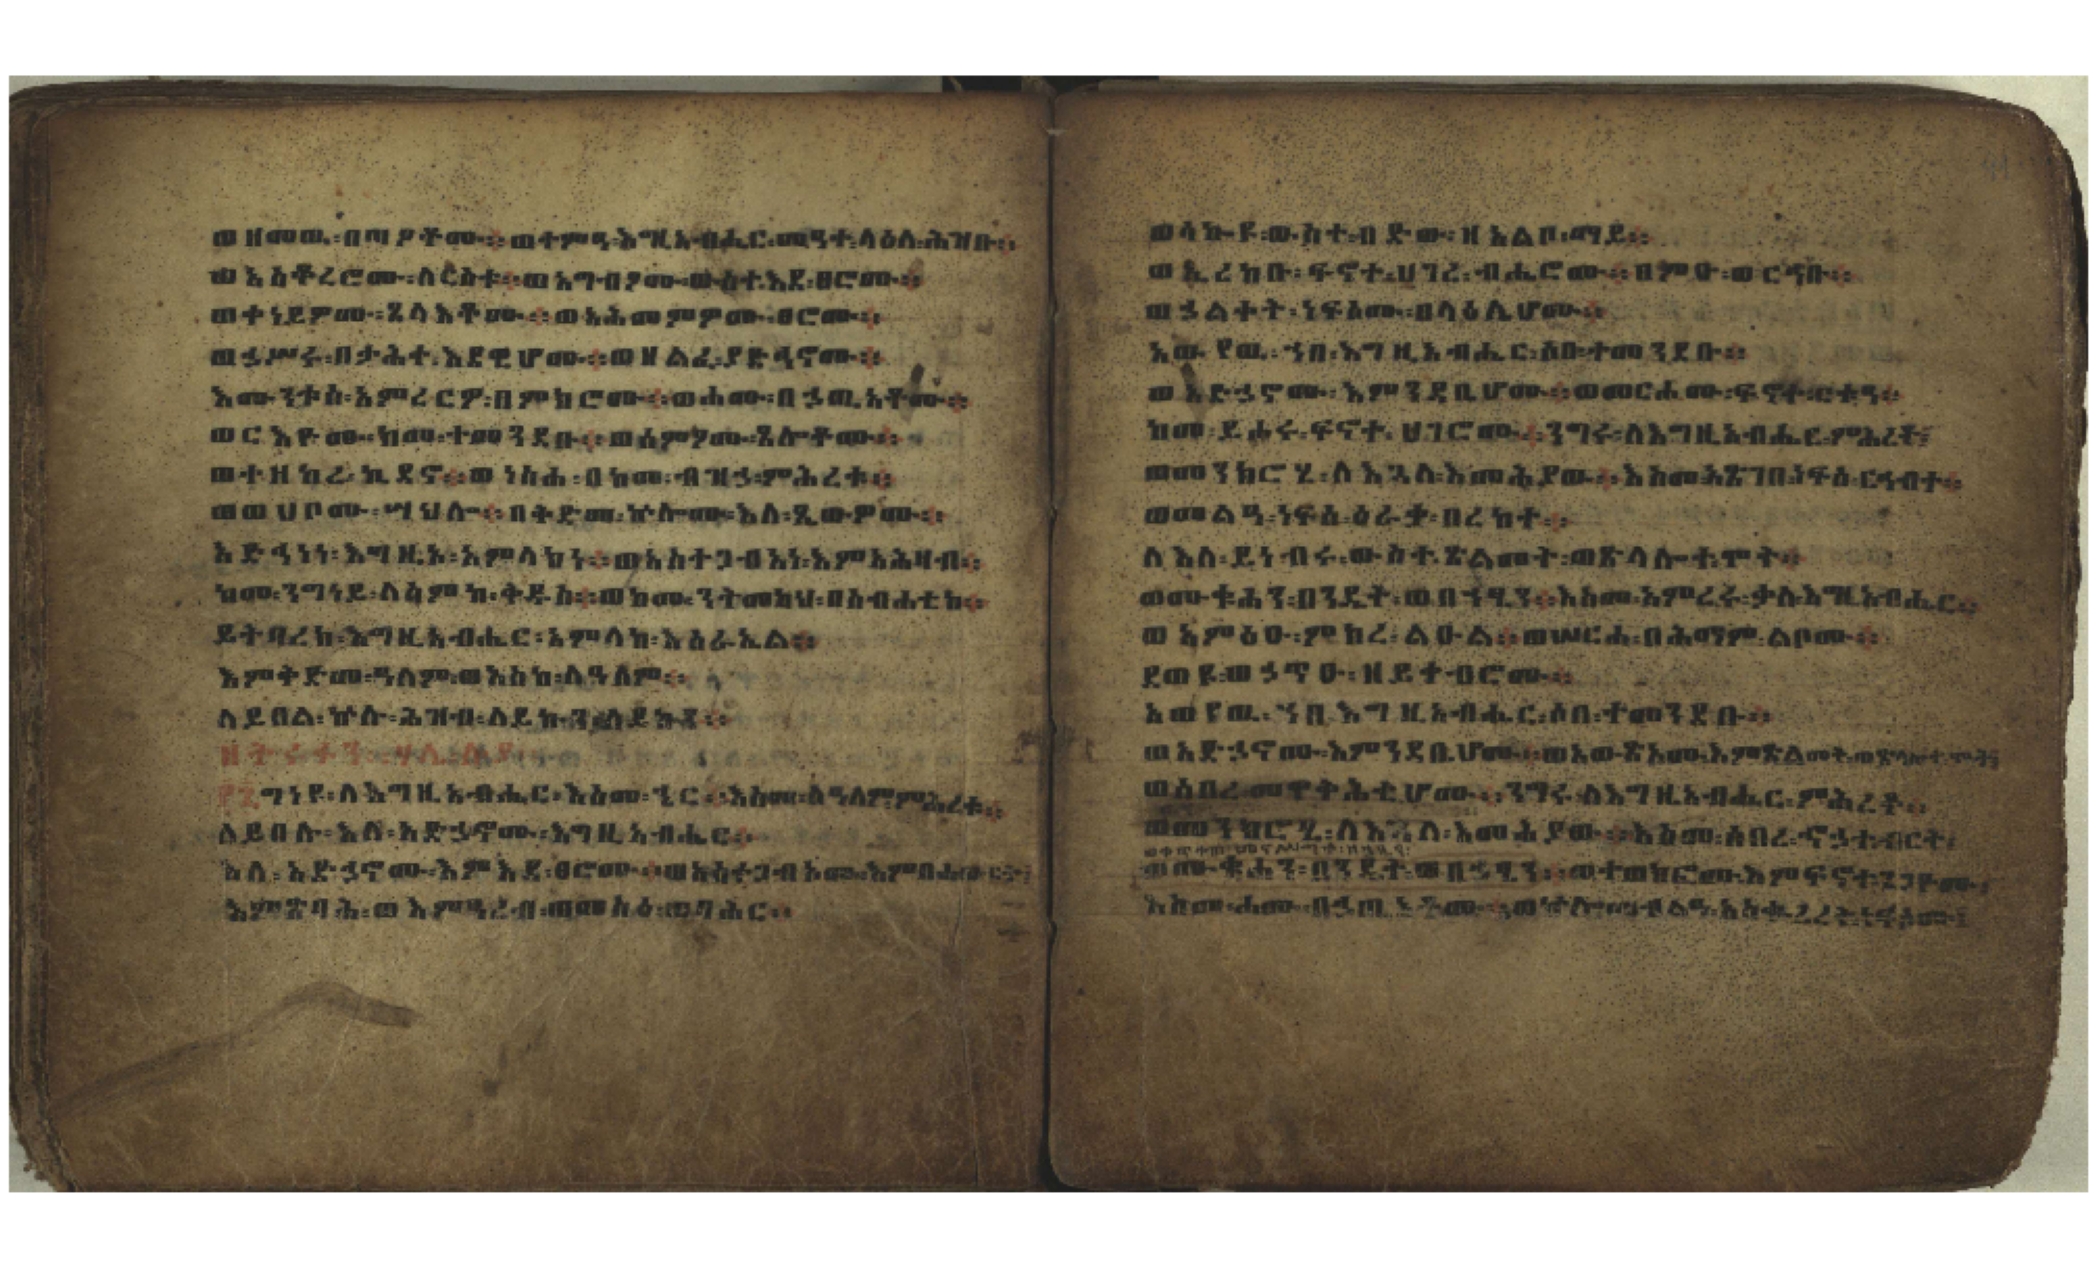 ወዘመዉ፡በጣዖቶሙ። ወተምዓ፡እግዚአብሔር፡መዓተ፡ላዕለ፡ሕዝቡ።
ወአስቆረሮሙ፡ለርስቱ። ወአግብኦሙ፡ውስተ፡እደ፡ፀሮሙ።
ወተነይዎሙ፡ጸላእቶሙ። ወአሕመምዎሙ፡ፀሮሙ።
ወኃሥሩ፡በታሕተ፡እደዊሆሙ። ወዘልፈ፡ያድኅኖሙ።
እሙንቱሰ፡አምረርዎ፡በምክሮሙ። ወሐሙ፡በኃጢአቶሙ።
ወርእዮሙ፡ከመ፡ተመንደቡ። ወሰምዖሙ፡ጸሎቶሙ።
ወተዘከረ፡ኪዳኖ። ወነስሐ፡በከመ፡ብዝኃ፡ምሕረቱ።
ወወሀቦሙ፡ሣህሎ። በቅድመ፡ኵሎሙ፡እለ፡ፄወዎሙ።
አድኅነነ፡እግዚኦ፡አምላክነ። ወአስተጋብአነ፡እምአሕዛብ።
ከመ፡ንግነይ፡ለስምከ፡ቅዱስ። ወከመ፡ንትመካህ፡በስብሐቲከ።
ይትባረክ፡እግዚአብሔር፡አምላከ፡እስራኤል።
እምቅድመ፡ዓለም፡ወእስከ፡ለዓለም።
ለይበል፡ኵሉ፡ሕዝብ፡ለይኩን፡ለይኩን።
ግነዩ፡ለእግዚአብሔር፡እስመ፡ኄር። እስመ፡ለዓለም፡ምሕረቱ።
ለይበሉ፡እለ፡አድኃኖሙ፡እግዚአብሔር።
እለ፡አድኃኖሙ፡እምእደ፡ፀሮሙ። ወአስተጋብኦሙ፡እምበሐውርት፡
እምጽባሕ፡ወእምዓረብ፡ወመስዕ፡ወባሕር።
ወሳኩዩ፡ውስተ፡በድው፡ዘአልቦ፡ማይ።
ወኢረከቡ፡ፍኖተ፡ሀገረ፡ብሔሮሙ። በምዑ፡ወርኅቡ።
ወኃልቀት፡ነፍሶሙ፡በላዕሌሆሙ።
አውየዉ፡ኀበ፡እግዚአብሔር፡ሶበ፡ተመንደቡ።
ወአድኃኖሙ፡እምንዳቤሆሙ። ወመርሖሙ፡ፍኖተ፡ርቱዓ።
ከመ፡ይሖሩ፡ፍኖተ፡ሀገሮሙ። ንግሩ፡ለእግዚአብሔር፡ምሕረቶ፤
ወመንክሮሂ፡ለእጓለ፡እመሕያው። እስመ፡አጽገበ፡ነፍሰ፡ርኅብተ።
ወመልዓ፡ነፍሰ፡ዕራቃ፡በረከተ።
ለእለ፡ይነብሩ፡ውስተ፡ጽልመት፡ወጽላሎተ፡ሞት።
ወሙቁሐን፡በንዴት፡ወበኀፂን። እስመ፡አምረሩ፡ቃለ፡እግዚአብሔር።
ወአምዕዑ፡ምክረ፡ልዑል። ወሠርሐ፡በሕማም፡ልቦሙ።
ደወዩ፡ወኃጥኡ፡ዘይተብሮሙ።
አውየዉ፡ኀበ፡እግዚአብሔር፡ሶበ፡ተመንደቡ።
ወአድኃኖሙ፡እምንዳቤሆሙ። ወአውጽኦሙ፡እምጽልመት፡ወጽላሎተ፡ሞት፤
ወሰበረ፡መዋቅሕቲሆሙ። ንግሩ፡ለእግዚአብሔር፡ምሕረቶ።
ወመንክሮሂ፡ለእጓለ፡እመሕያው። እስመ፡ሰበረ፡ኆኃተ፡ብርት፡
ወሙቁሐን፡በንዴት፡ወበኃፂን። ወተወክፎሙ፡እምፍኖተ፡ጌጋዮሙ፡
እስመ፡ሐሙ፡በኃጢአቶሙ።